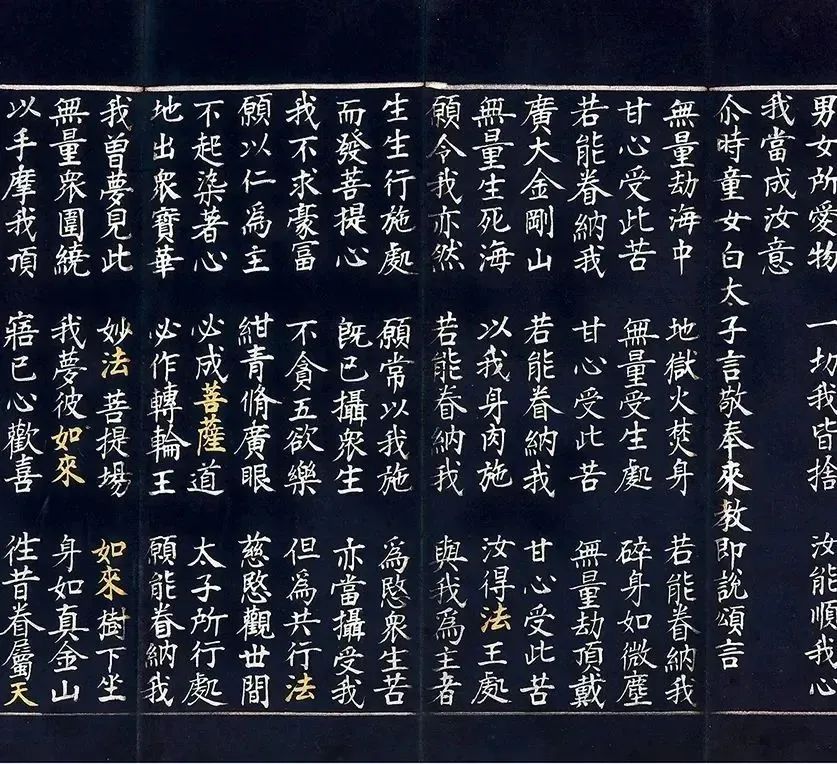 男女所愛物 一切我皆捨 汝能順我心
我當成汝意
尒時童女白太子言敬奉來教即說頌言
無量劫海中 地獄火焚身 若能眷納我
甘心受此苦 無量受生處 碎身如微塵
若能眷納我 甘心受此苦 無量劫頂戴
廣大金剛山 若能眷納我 甘心受此苦
無量生死海 以我身肉施 汝得法王處
願令我亦然 若能眷納我 與我為主者
生生行施處 願常以我施 為愍衆生苦
而發菩提心 既已攝衆生 亦當攝受我
我不求豪冨 不貪五欲樂 但為共行法
願以仁為主 紺青脩廣眼 慈愍觀世間
不起染著心 必成菩薩道 太子所行處
地出衆寶華 必作轉輪王 願能眷納我
我曾夢見此 妙法菩提場 如來樹下坐
無量衆圍繞 我夢彼如來 身如真金山
以手摩我頂 寤已心歡喜 往昔眷屬天